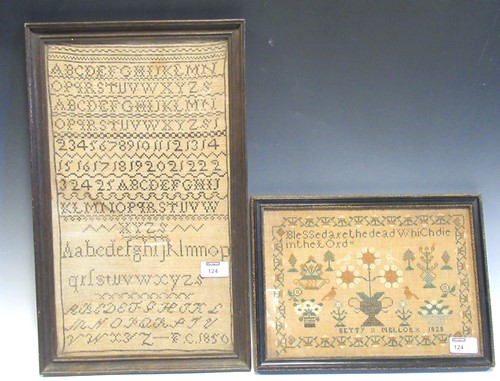 ABCDEFGHIJKLMN
OPQRSTUVWXYZS
ABCDEFGHIJKLMN
OPQRSTUVWXYZS
234567891011121314
1516171819202122 2
3 24 25 ABCDEFGHIJ
KLMNOPQRSTUVW
XYZS
AabcdefghijklmnoP
qrſstuvwxyzs
ABCDEFGHIKL
MNOPQRSTV
VWXYZ C.1850
124
BlesSedarethedeadWhiChdie
intheLOrd"
BETTY MELLOR 1828
124